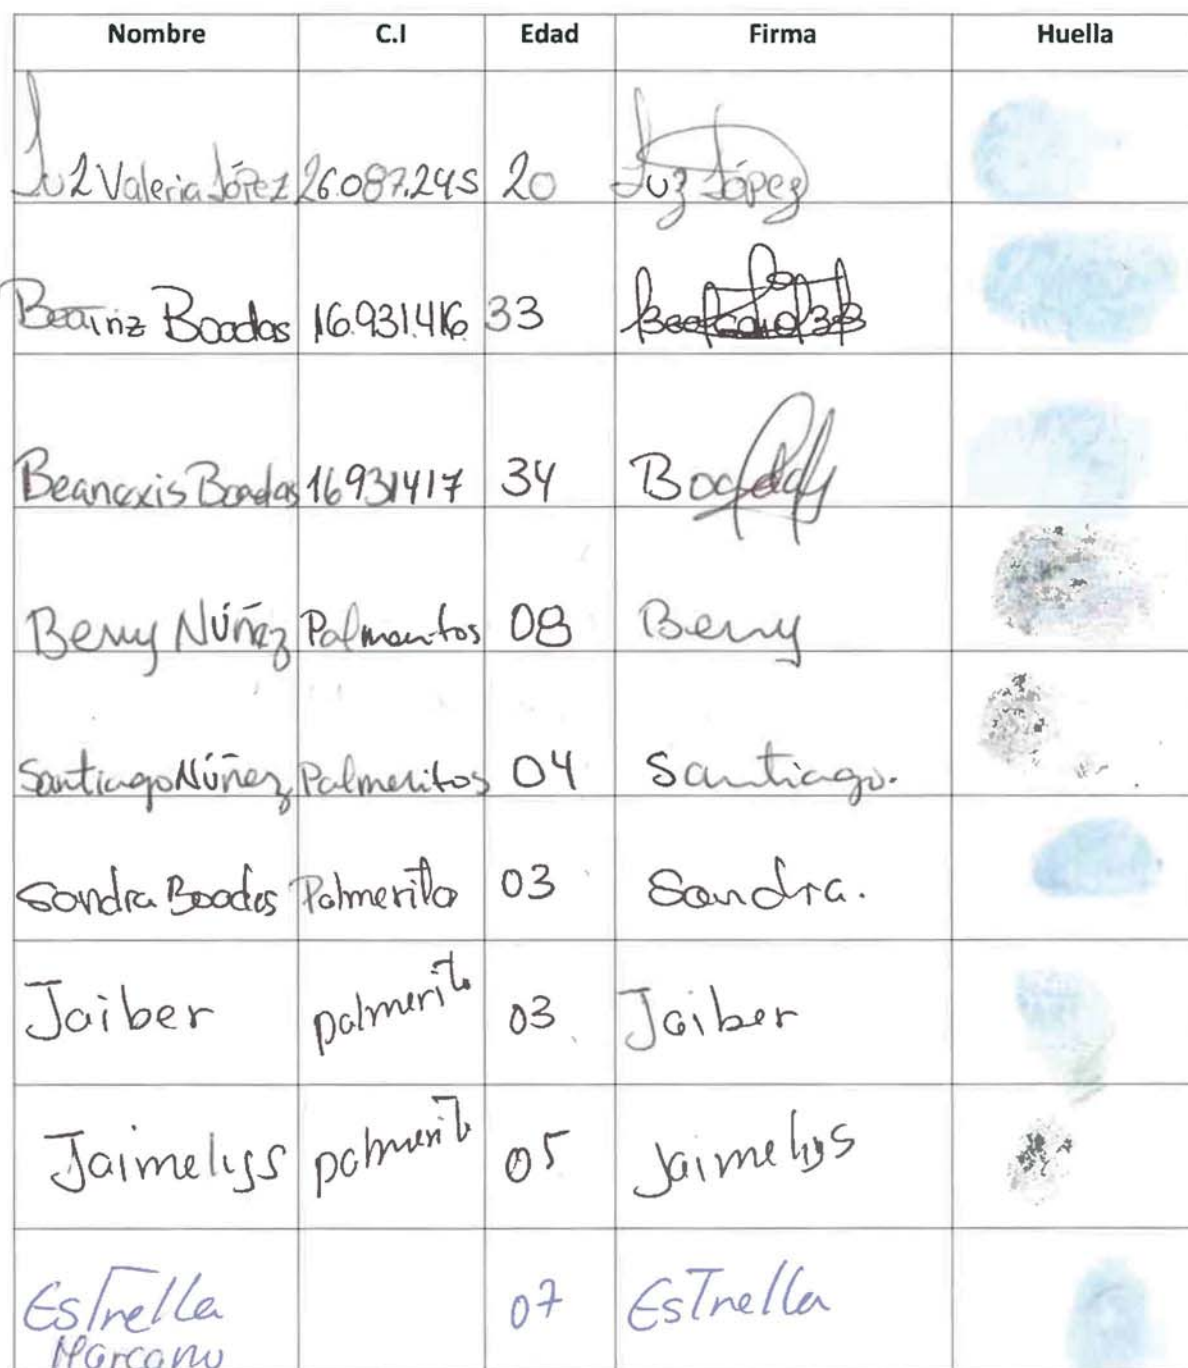 Nombre C.I Edad Firma Huella
Luz Valeria López 26.087.245 20 Luz López
Beatriz Boadas 16.931.416 33
Beanexis Boadas 16931417 34 Boadas
Beny Núñez Palmeritos 08 Beny
Santiago Núñez Palmeritos 04 Santiago.
Sandra Boadas Palmerito 03 Sandra.
Jaiber palmerito 03 Jaiber
Jaimelyss palmerito 05 Jaimelys
Estrella 07 Estrella
Marcano